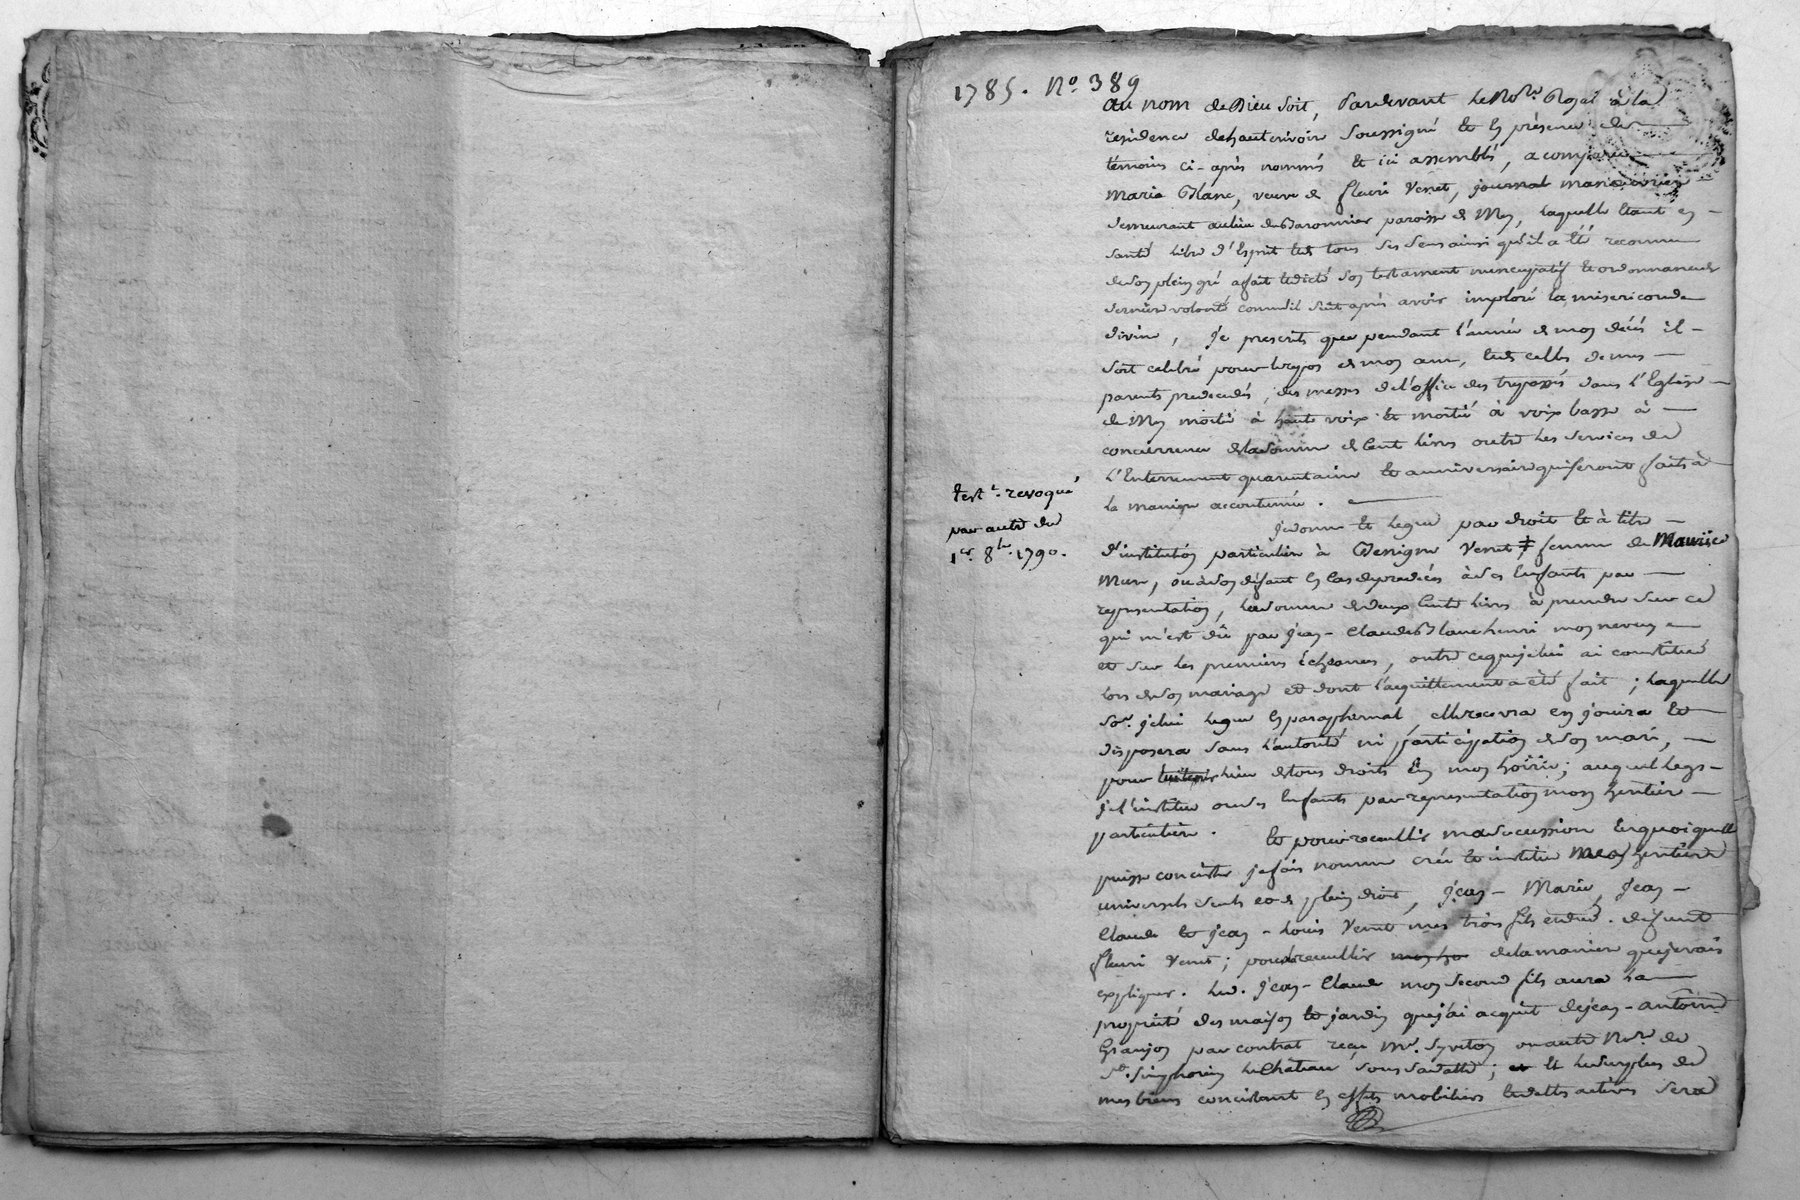 1785. No. 389
Au nom de Dieu soit, Pardevant Le Nore. Royal à la
residence dehauterivoire soussigné et En présence des
témoins ci-après nommés et ici assemblés, a comparu
Marie Blanc, veuve de fleuri Venet, journal manœuvrier
demeurant au lieu du Baronnier paroisse de Meys, Laquelle Etant En
santé libre d'Esprit Et de tous ses sens ainsi qu'il a Eté reconnu
de son plein gré a fait Et dicté son testament nuncupatif Et ordonnance de
dernière volonté comme il suit après avoir imploré la misericorde
divine, je prescrits que pendant l'année de mon décès il
soit celebré pour le repos de mon ame, Et de celles de mes
parents predecedés, des messes de l'office des trepassés dans l'Eglise
de Meys moitié à haute voix et moitié à voix basse à
concurrence de la somme de Cent livres outre Les services de
L'Enterrement quarantaine Et anniversaire qui seront faits à
la manière accoutumée.
testt. revoqué
par autre du
1er. 8bre. 1790.
je donne Et Legue par droit Et à titre
d'institution particulière à Benigne Venet, femme de Maurice
Mure, ou à son défaut En Cas de predécès à ses Enfants par
representation, La somme de deux Cents livres à prendre sur ce
qui m'est dû par jean-Claude Blanchenri mon neveu
et sur les premiers Echeances, outre ce que je lui ai constitué
lors de son mariage et dont l'acquittement a été fait; laquelle
soe. je lui Legue En paraphernal, elle recevra En jouira Et
disposera sans l'autorité ni participation de son mari,
pour lieu de tous droits En mon hoirie; auquel Legs
je l'institue ou ses Enfants par representation mon heritière
particulière. Et pour recueillir ma succession En quoi qu'elle
puisse concister je fais nomme crée Et institue mes heritiers
universels seuls et de plein droit, jean-Marie, jean-
Claude Et jean-Louis Venet mes trois fils et dud. defunt
fleuri Venet; pour la recueillir mon ho de la manière que je vais
expliquer. Led. jean-Claude mon second fils aura La
propriété des maison Et jardin que j'ai acquit de jean-antoine
Granjon par contrat reçu Me. Syviton ou autre Nore. de
St. Simphorien Le Chateau sous sa datte; et Et Le surplus de
mes biens concistant En effets mobiliers Et dettes actives sera